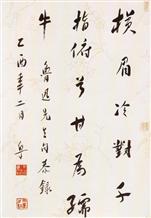 横眉冷對千
指俯首甘爲孺
牛
魯迅先生句恭錄
乙酉年二月